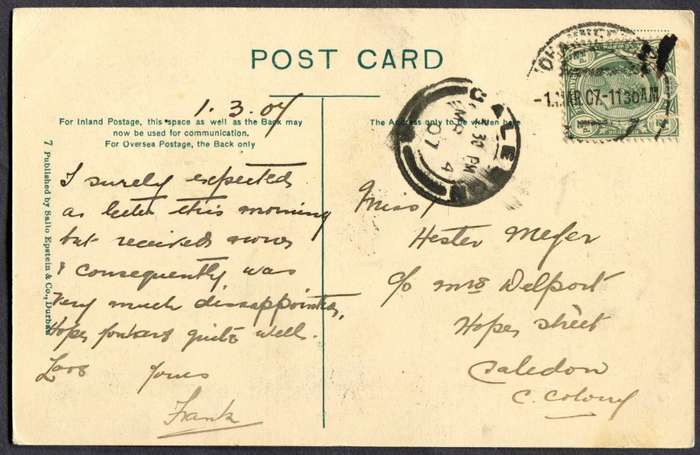 POST CARD
For Inland Postage, this space as well as the Back may
now be used for communication.
For Oversea Postage, the Back only
The Address only to be written here
7 Published by Sallo Epstein & Co., Durban
1.3.07
I surely expected
a letter this morning
but received none
& consequently was
very much dissappointed,
Hope quite well.
Yours
Frank
Miss
Hester Meyer
c/o Mrs Delport
Hope Street
Caledon
C. Colony
CALEDON
30 PM
MR 4
07
-1.MAR.07.-1130AM